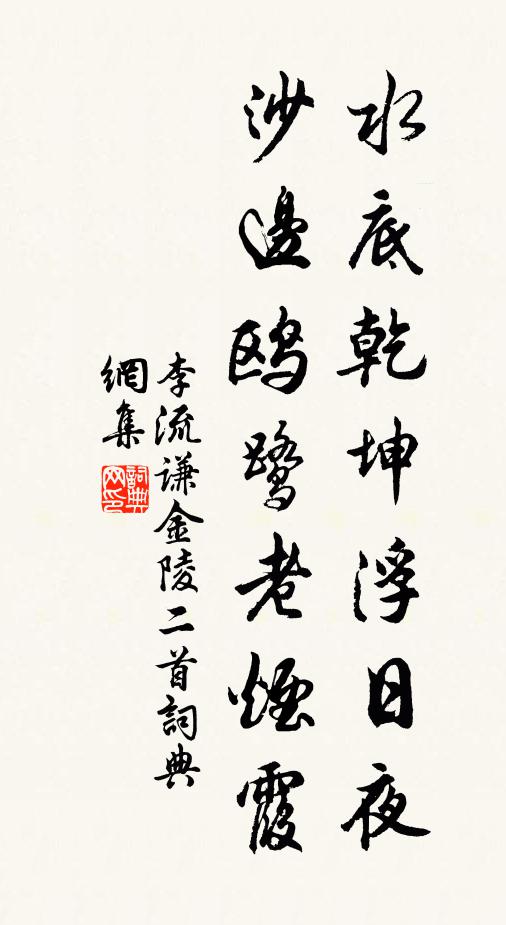 水底乾坤浮日夜
沙邊鷗鷺老煙霞
李流謙金陵二首詞典
網集
詞典網印